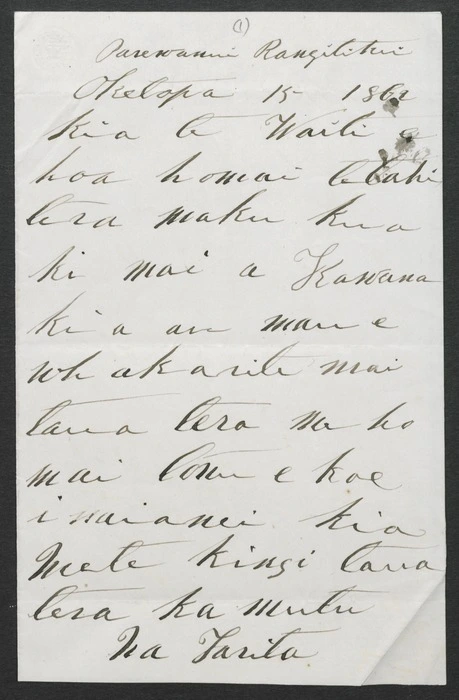 (1)
Parewanui Rangitikei
Oketopa 15 1862
kia te Waiti e
hoa homai tetahi
tera maku kua
ki mai a Kawana
ki a au mau e
whakarite mai
taua tera me ho
mai tonu e koe
inaianei kia
Mete kingi taua
tera ka mutu
Na Tarita